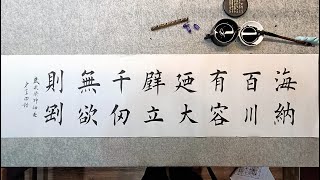 海納
百川
有容
廼大
壁立
千仞
無欲
則剛